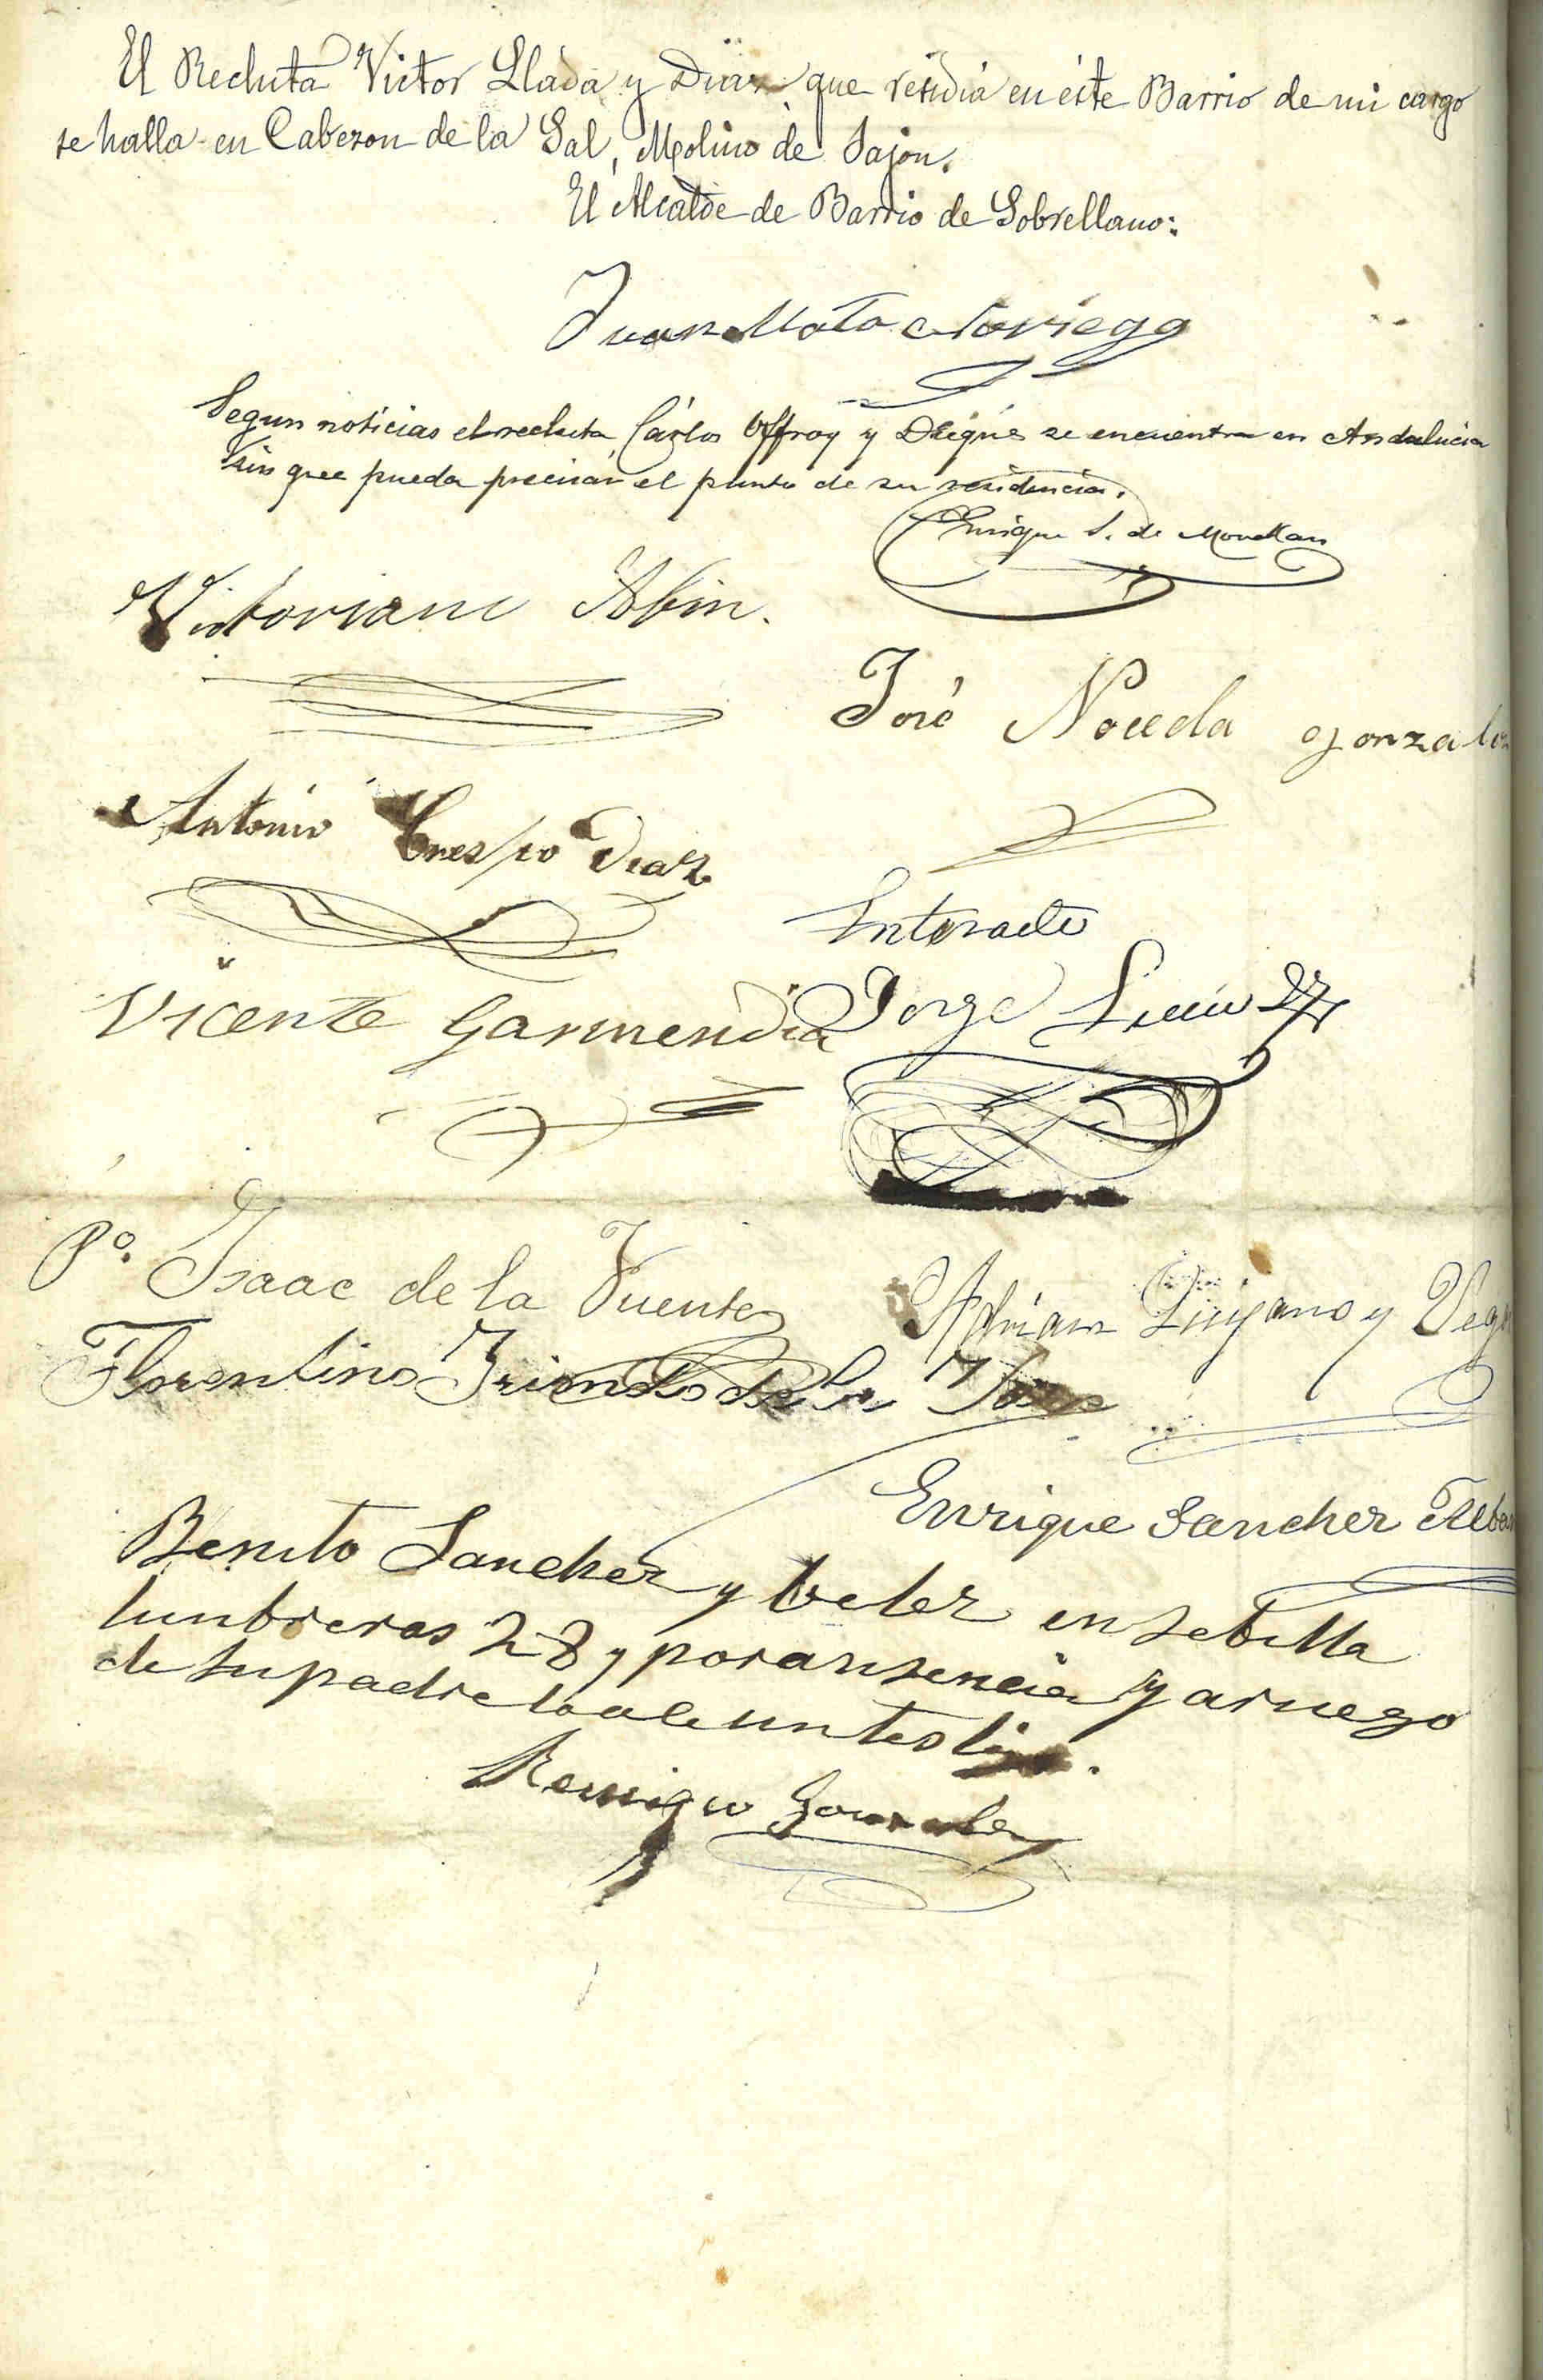 El Recluta Victor Llada y Diaz que residia en éste Barrio de mi cargo
se halla en Cabezon de la Sal, Molino de Jajon.
El Alcalde de Barrio de Sobrellano:
Juan Mota Noriega
Segun noticias el recluta Cárlos Offroy y se encuentra en Andalucia
sin que pueda precisar el punto de su residencia.
Enrique S. de Movellan
Victoriano Abin.
José Noceda Gonzalez
Antonio Crespo Diaz
Enterado
Vicente Garmendia
Jorge
Pº. Isaac de la Fuente
Adrian Quijano y Vega
Florentino de la
Enrique Sanchez
Benito Sanchez y Velez en Sebilla
lumbreras 28 y por ausencia y a ruego
de su padre lo ace un testigo.
Remigio Gonzalez